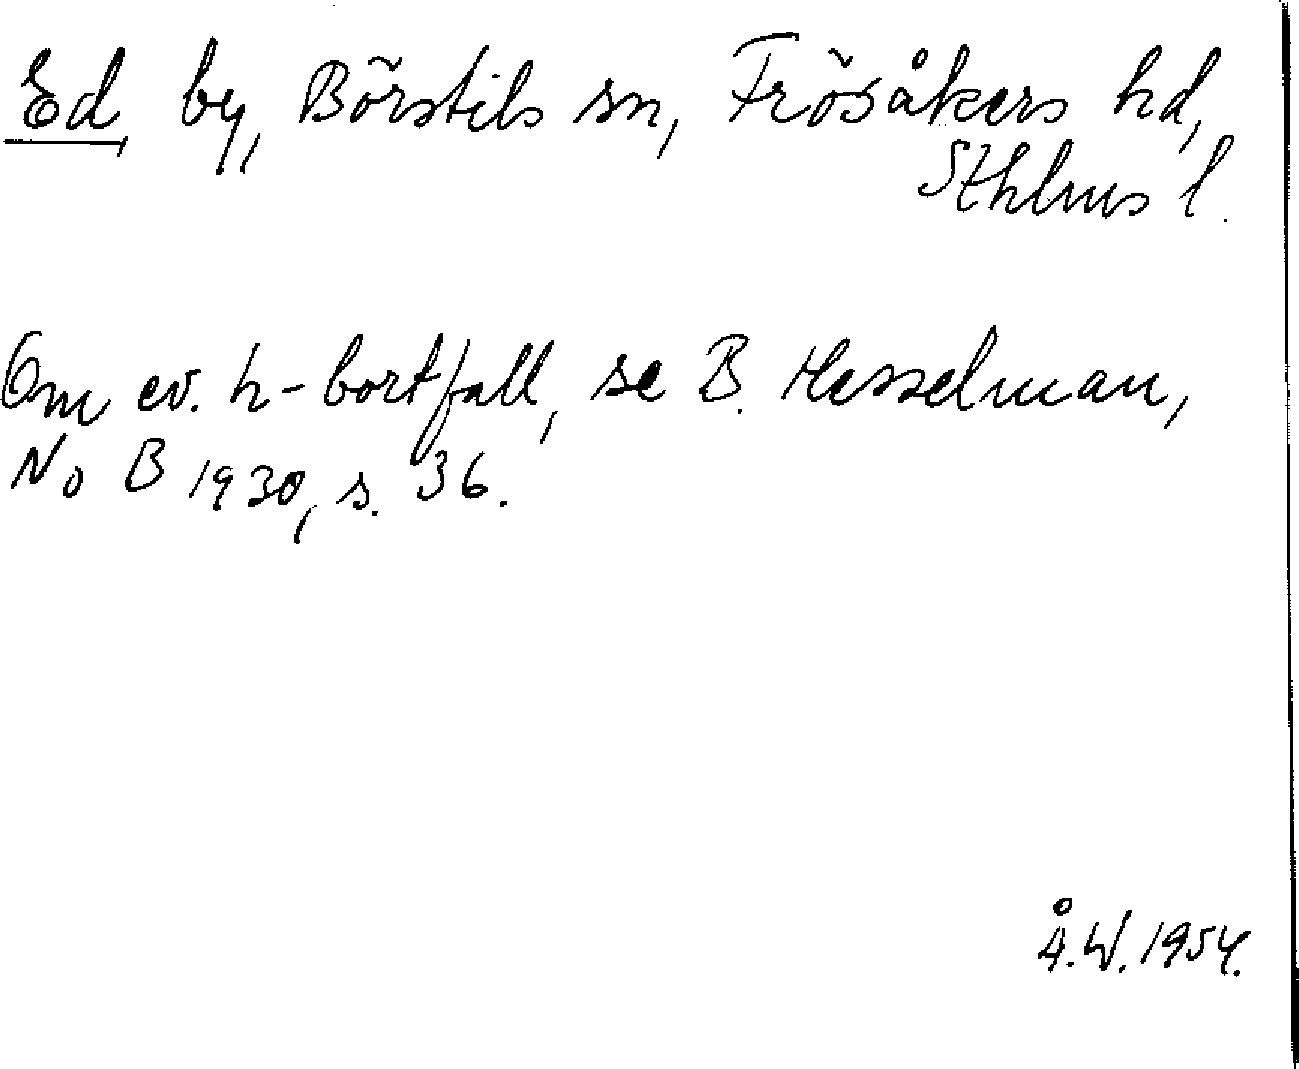 Ed, by, Börstils sn, Frösåkers hd,
Sthlms l.
Om ev. h-bortfall, se B. Hesselman,
NoB 1930, s. 36.
Å.W. 1954.